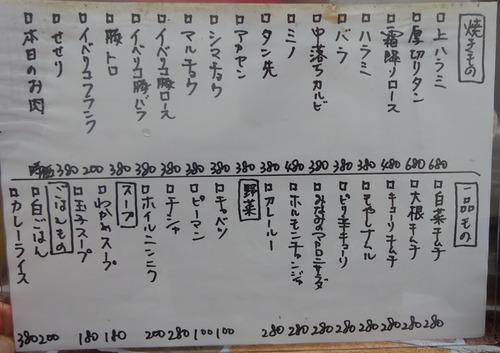 焼きもの
□上ハラミ 680
□厚切りタン 680
□霜降りロース 480
□ハラミ 380
□バラ 380
□中落ちカルビ 380
□ミノ 480
□タン先 380
□アカセン 380
□シマチョウ 380
□マルチョウ 380
□イベリコ豚ロース 380
□イベリコ豚バラ 380
□豚トロ 380
□イベリコフランク 200
□せせり 380
□本日のお肉 時価
一品もの
□白菜キムチ 280
□大根キムチ 280
□キューリキムチ 280
□もやしナムル 280
□ピリ辛キューリ 280
□みなみのマカロニサラダ 280
□ホルモンチャンジャ 280
□カレールー 280
野菜
□キャベツ 100
□ピーマン 100
□チシャ 280
□ホイルニンニク 200
スープ
□わかめスープ 180
□玉子スープ 180
ごはんもの
□白ごはん 200
□カレーライス 380